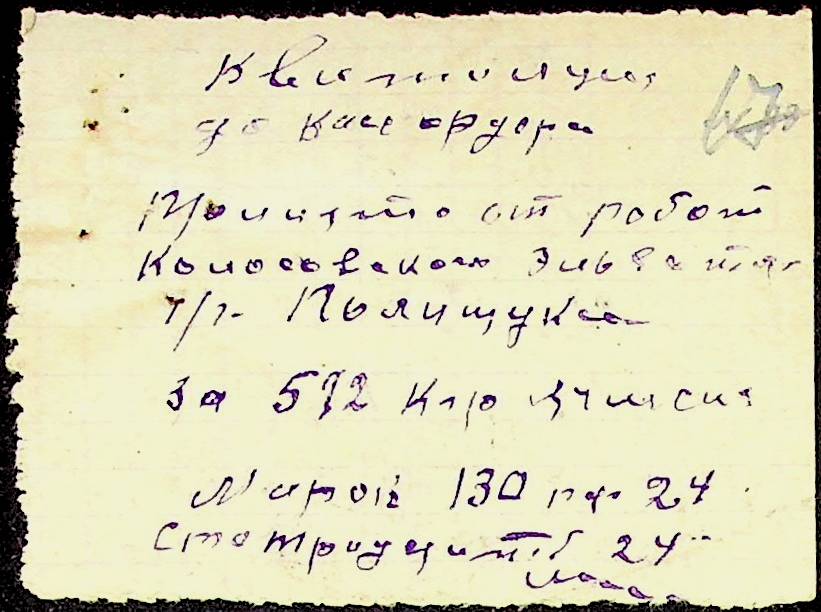 Квитанция
до Касс ордера
Принято от работ
Колосовского Элеватор
т/г. Полищука
за 572 кгр ячменя
Марок 130 пф 24
Сто тридцять 24